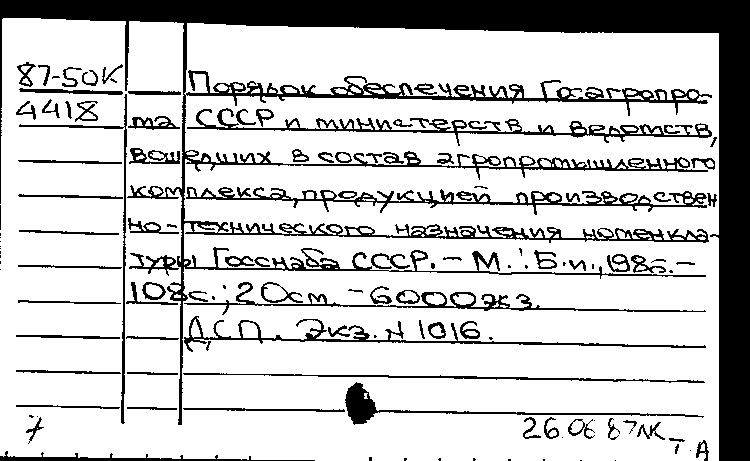 87-50К Порядок обеспечения Госагропро-
4418 ма СССР и министерств и ведомств,
вошедших в состав агропромышленного
комплекса, продукцией производствен
но-технического назначения номенкла-
туры Госснаба СССР. - М.: Б.и., 1986. -
108с.; 20см. - 6000экз.
ДСП. Экз. N 1016.
26 06 87 ЛК Т. А